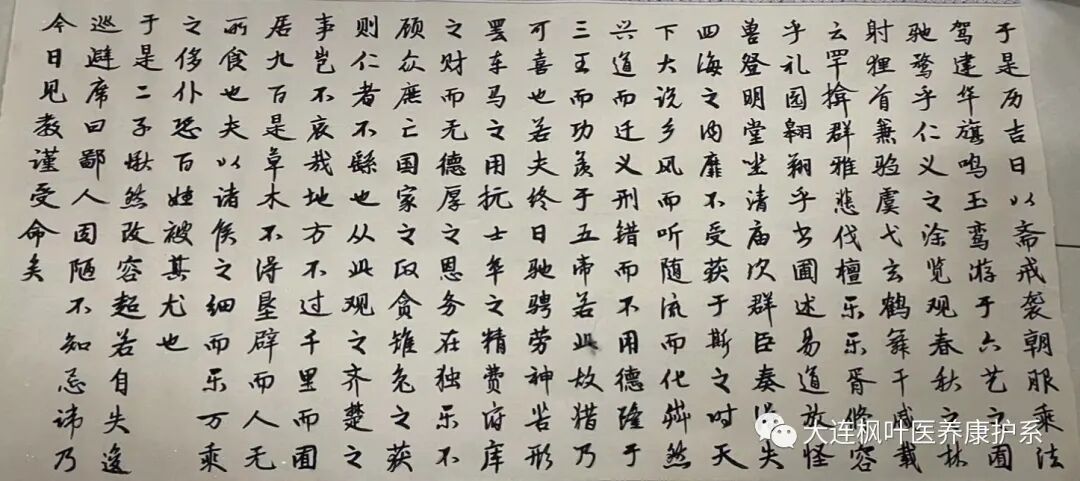 于是历吉日以斋戒袭朝服乘法
驾建华旗鸣玉鸾游于六艺之囿
驰骛乎仁义之涂览观春秋之林
射狸首兼验虞弋玄鹤舞干戚载
云罕揜群雅悲伐檀乐乐胥修容
乎礼园翱翔乎书圃述易道放怪
兽登明堂坐清庙次群臣奏得失
四海之内靡不受获于斯之时天
下大说乡风而听随流而化芔然
兴道而迁义刑错而不用德隆于
三王而功羡于五帝若此故猎乃
可喜也若夫终日驰骋劳神苦形
罢车马之用抏士卒之精费府库
之财而无德厚之恩务在独乐不
顾众庶亡国家之政贪雉兔之获
则仁者不繇也从此观之齐楚之
事岂不哀哉地方不过千里而囿
居九百是草木不得垦辟而人无
所食也夫以诸侯之细而乐万乘
之侈仆恐百姓被其尤也
于是二子愀然改容超若自失逡
巡避席曰鄙人固陋不知忌讳乃
今日见教谨受命矣
大连枫叶医养康护系